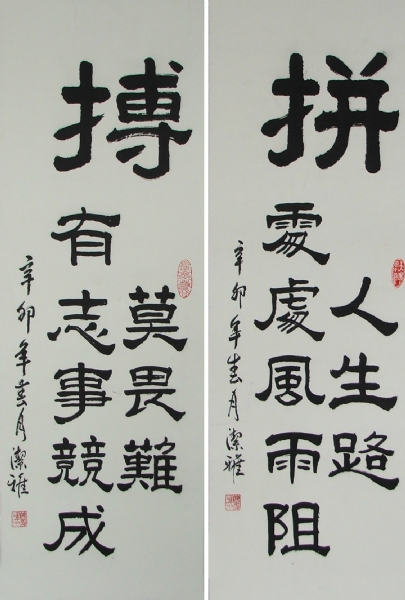 拼
人生路
處處風雨阻
辛卯年春月潔雅
搏
莫畏難
有志事競成
辛卯年春月潔雅